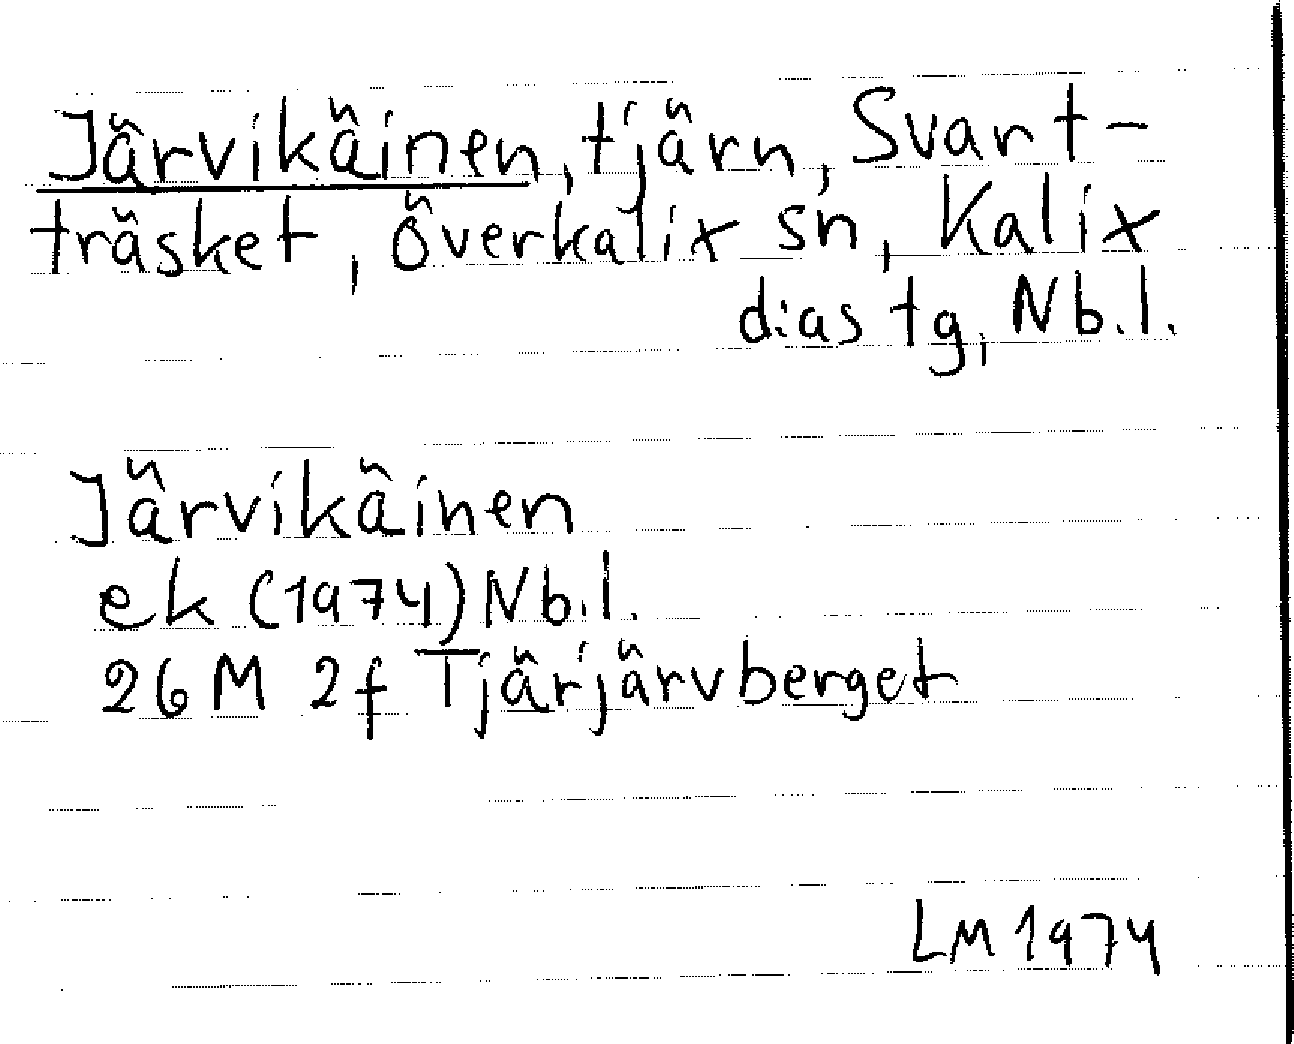 Järvikäinen, tjärn, Svart-
träsket, Överkalix sn, Kalix
dias tg, Nb.l.
Järvikäinen
ek (1974) Nb.l.
26 M 2f Tjärjärvberget
LM 1974